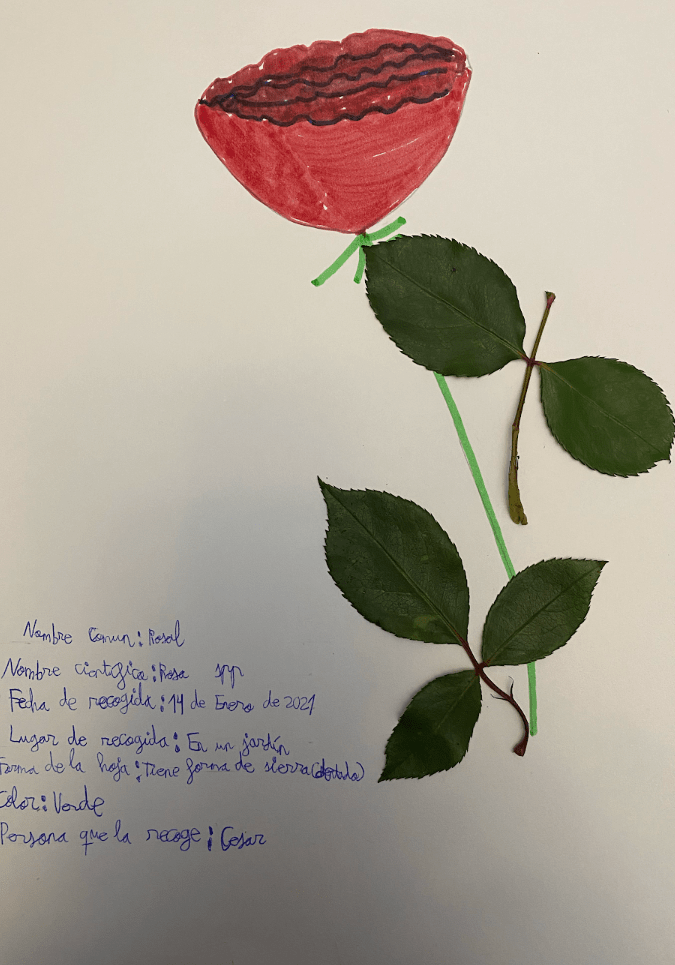 Nombre Comun: Rosal
Nombre cientifica: Rosa spp
Fecha de recogida: 14 de Enero de 2021
Lugar de recogida: En un jardín
Forma de la hoja: Tiene forma de sierra (dentada)
Color: Verde
Persona que la recoge: Cesar